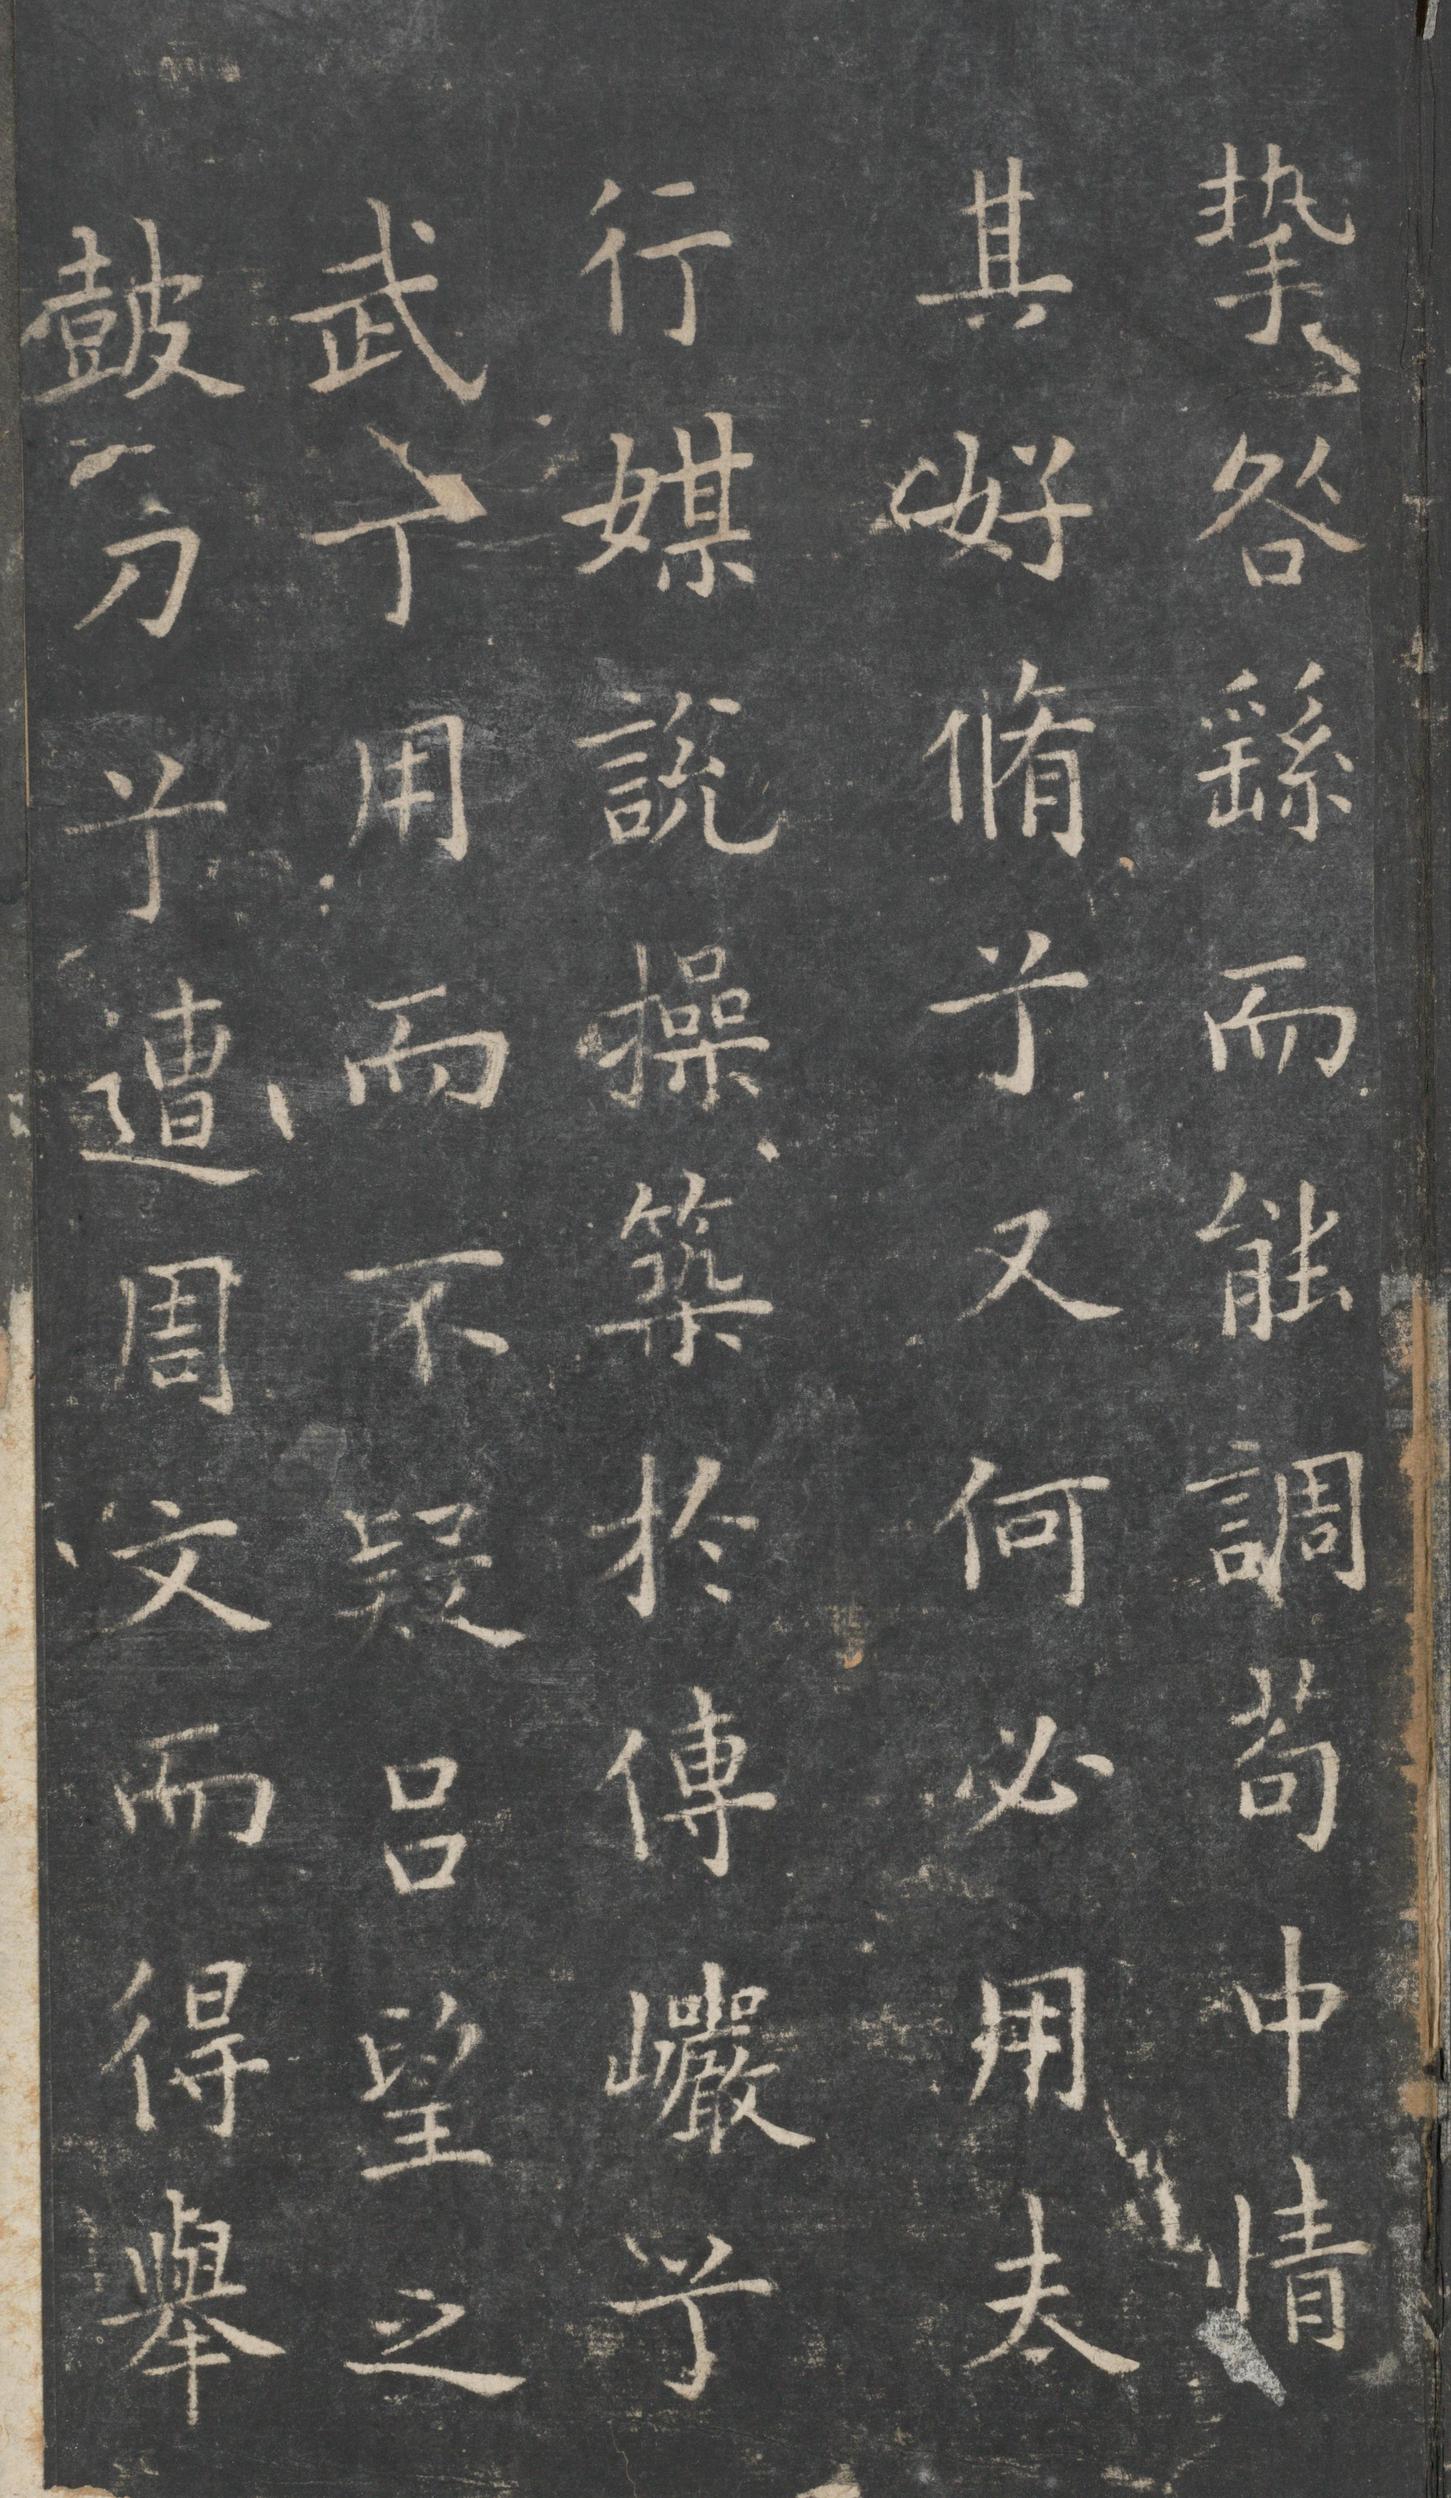 摯咎繇而能調苟中情
其好脩兮又何必用夫
行媒說操築扵傅巗兮
武丁用而不疑呂望之
皷刀兮遭周文而得舉